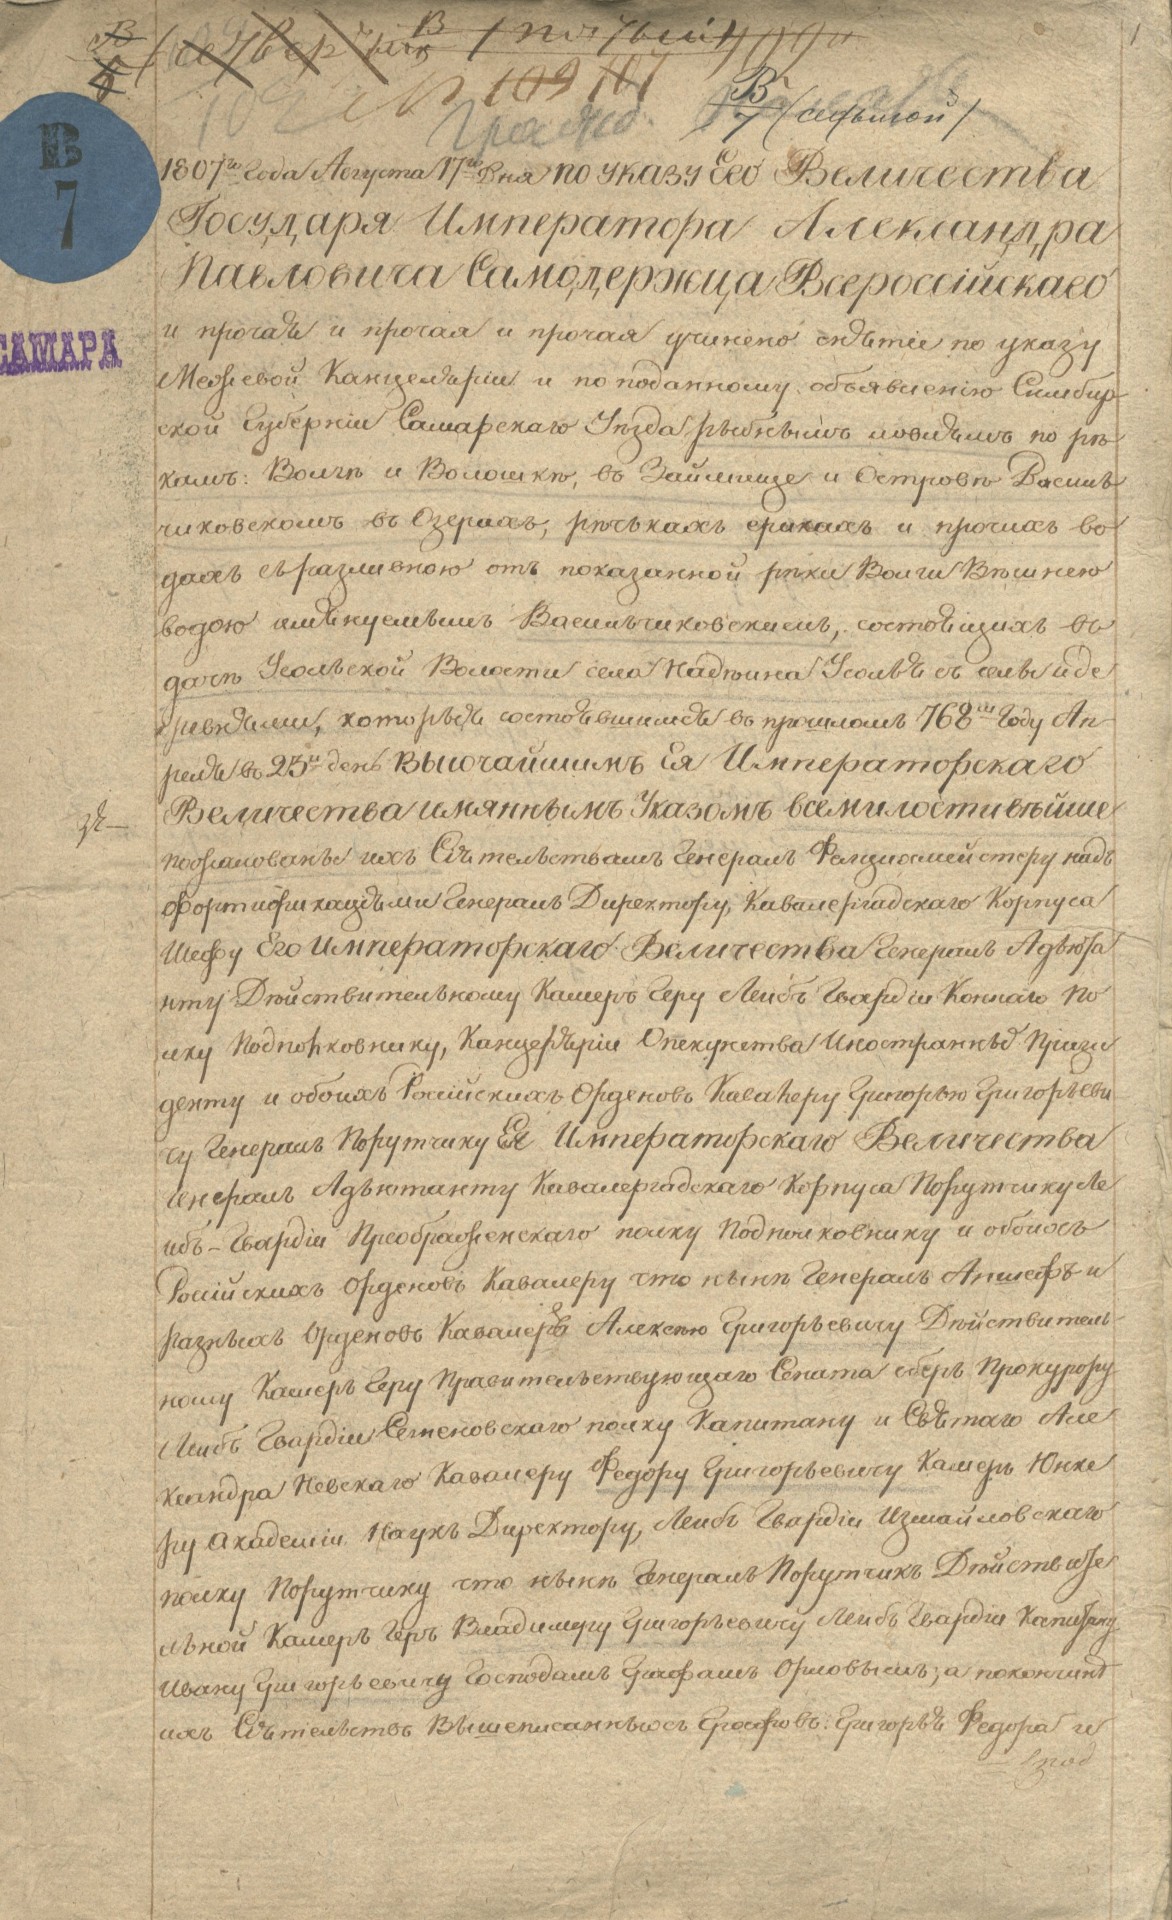 В
109 107
Гражд.
В
7 (седьмой)
1
В
7
САМАРА
1807го Года Августа 17го Дня по указу Его Величества
Государя Императора Александра
Павловича Самодержца Всероссійскаго
и прочая и прочая и прочая учинено снятіе по указу
Межевой Канцеляріи и по поданному объявленію Симбир
ской Губерніи Самарскаго Уезда рыбнымъ ловлямъ по рѣ
камъ: Волгѣ и Воложкѣ, въ Займище и Островѣ Василь
чиковскомъ въ Озерахъ, рѣчькахъ ерикахъ и прочихъ во
дахъ съ разливною отъ показанной рѣки Волги Вѣшнею
водою имянуемымъ Васильчиковскимъ, состоящихъ въ
дачѣ Усольской Волости села Надѣина Усолья съ селы и де
ревнями, которыя состоявшимся въ прошломъ 768мъ Году Ап
реля въ 23й день Высочайшимъ Ея Императорскаго
Величества имяннымъ Указомъ всемилостивѣйше
пожалованы ихъ Сіятельствамъ Генералъ Фелцихмейстеру надъ
фортификаціями Генералъ Директору, Кавалергадскаго Корпуса
Шефу Его Императорскаго Величества Генералъ Адъюта
нту Дѣйствительному Камеръ Геру Лейбъ Гвардіи Коннаго По
лку Подполковнику, Канцеляріи Опекунства Иностранныхъ Прези
денту и обоихъ Россійскихъ Орденовъ Кавалеру Григорью Григорьеви
чу Генералъ Порутчику Ея Императорскаго Величества
Генералъ Адъютанту Кавалергадскаго Корпуса Порутчику Ле
ибъ-Гвардіи Преображенскаго полку Подполковнику и обоихъ
Россійскихъ Орденовъ Кавалеру что нынѣ Генералъ Аншефъ и
разныхъ Орденовъ Кавалеръ Алексѣю Григорьевичу Дѣйствитель-
ному Камеръ Геру Правительствующаго Сената оберъ Прокурору
Лейбъ Гвардіи Семеновскаго полку Капитану и Святаго Але
ксандра Невскаго Кавалеру Федору Григорьевичу Камеръ Юнке
ру Академіи Наукъ Директору, Лейбъ Гвардіи Измайловскаго
полку Порутчику что нынѣ Генералъ Порутчикъ Дѣйствите
льной Камеръ Геръ Владимеру Григорьевичу Лейбъ Гвардіи Капитану
Ивану Григорьевичу Господамъ Графамъ Орловымъ; а по кончинѣ
ихъ Сіятельствъ Вышеписанныхъ Графовъ: Григорья Федора и